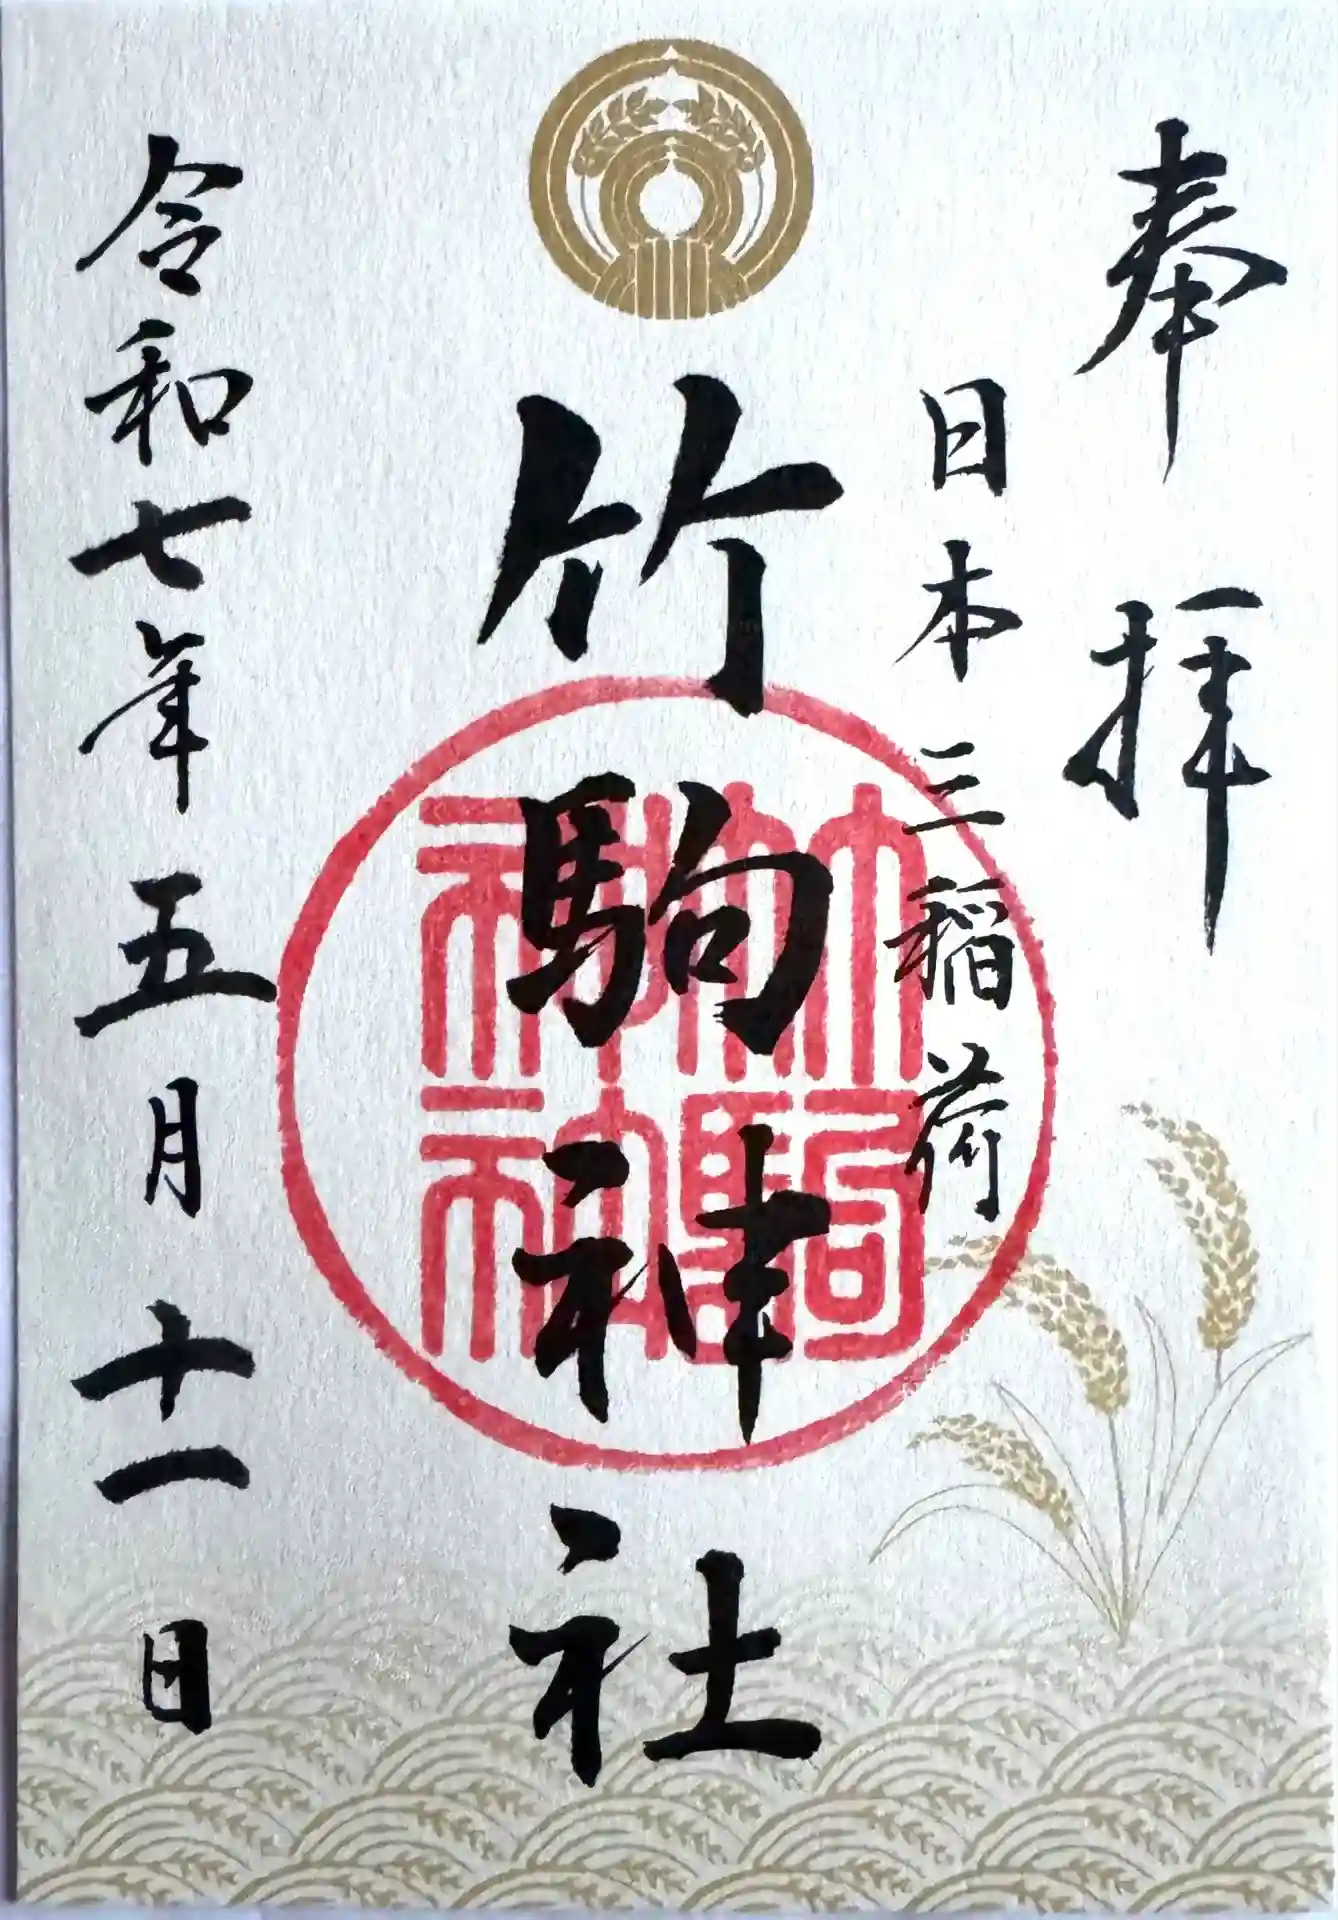 奉拝
日本三稲荷
竹駒神社
竹駒
神社
令和七年五月十一日